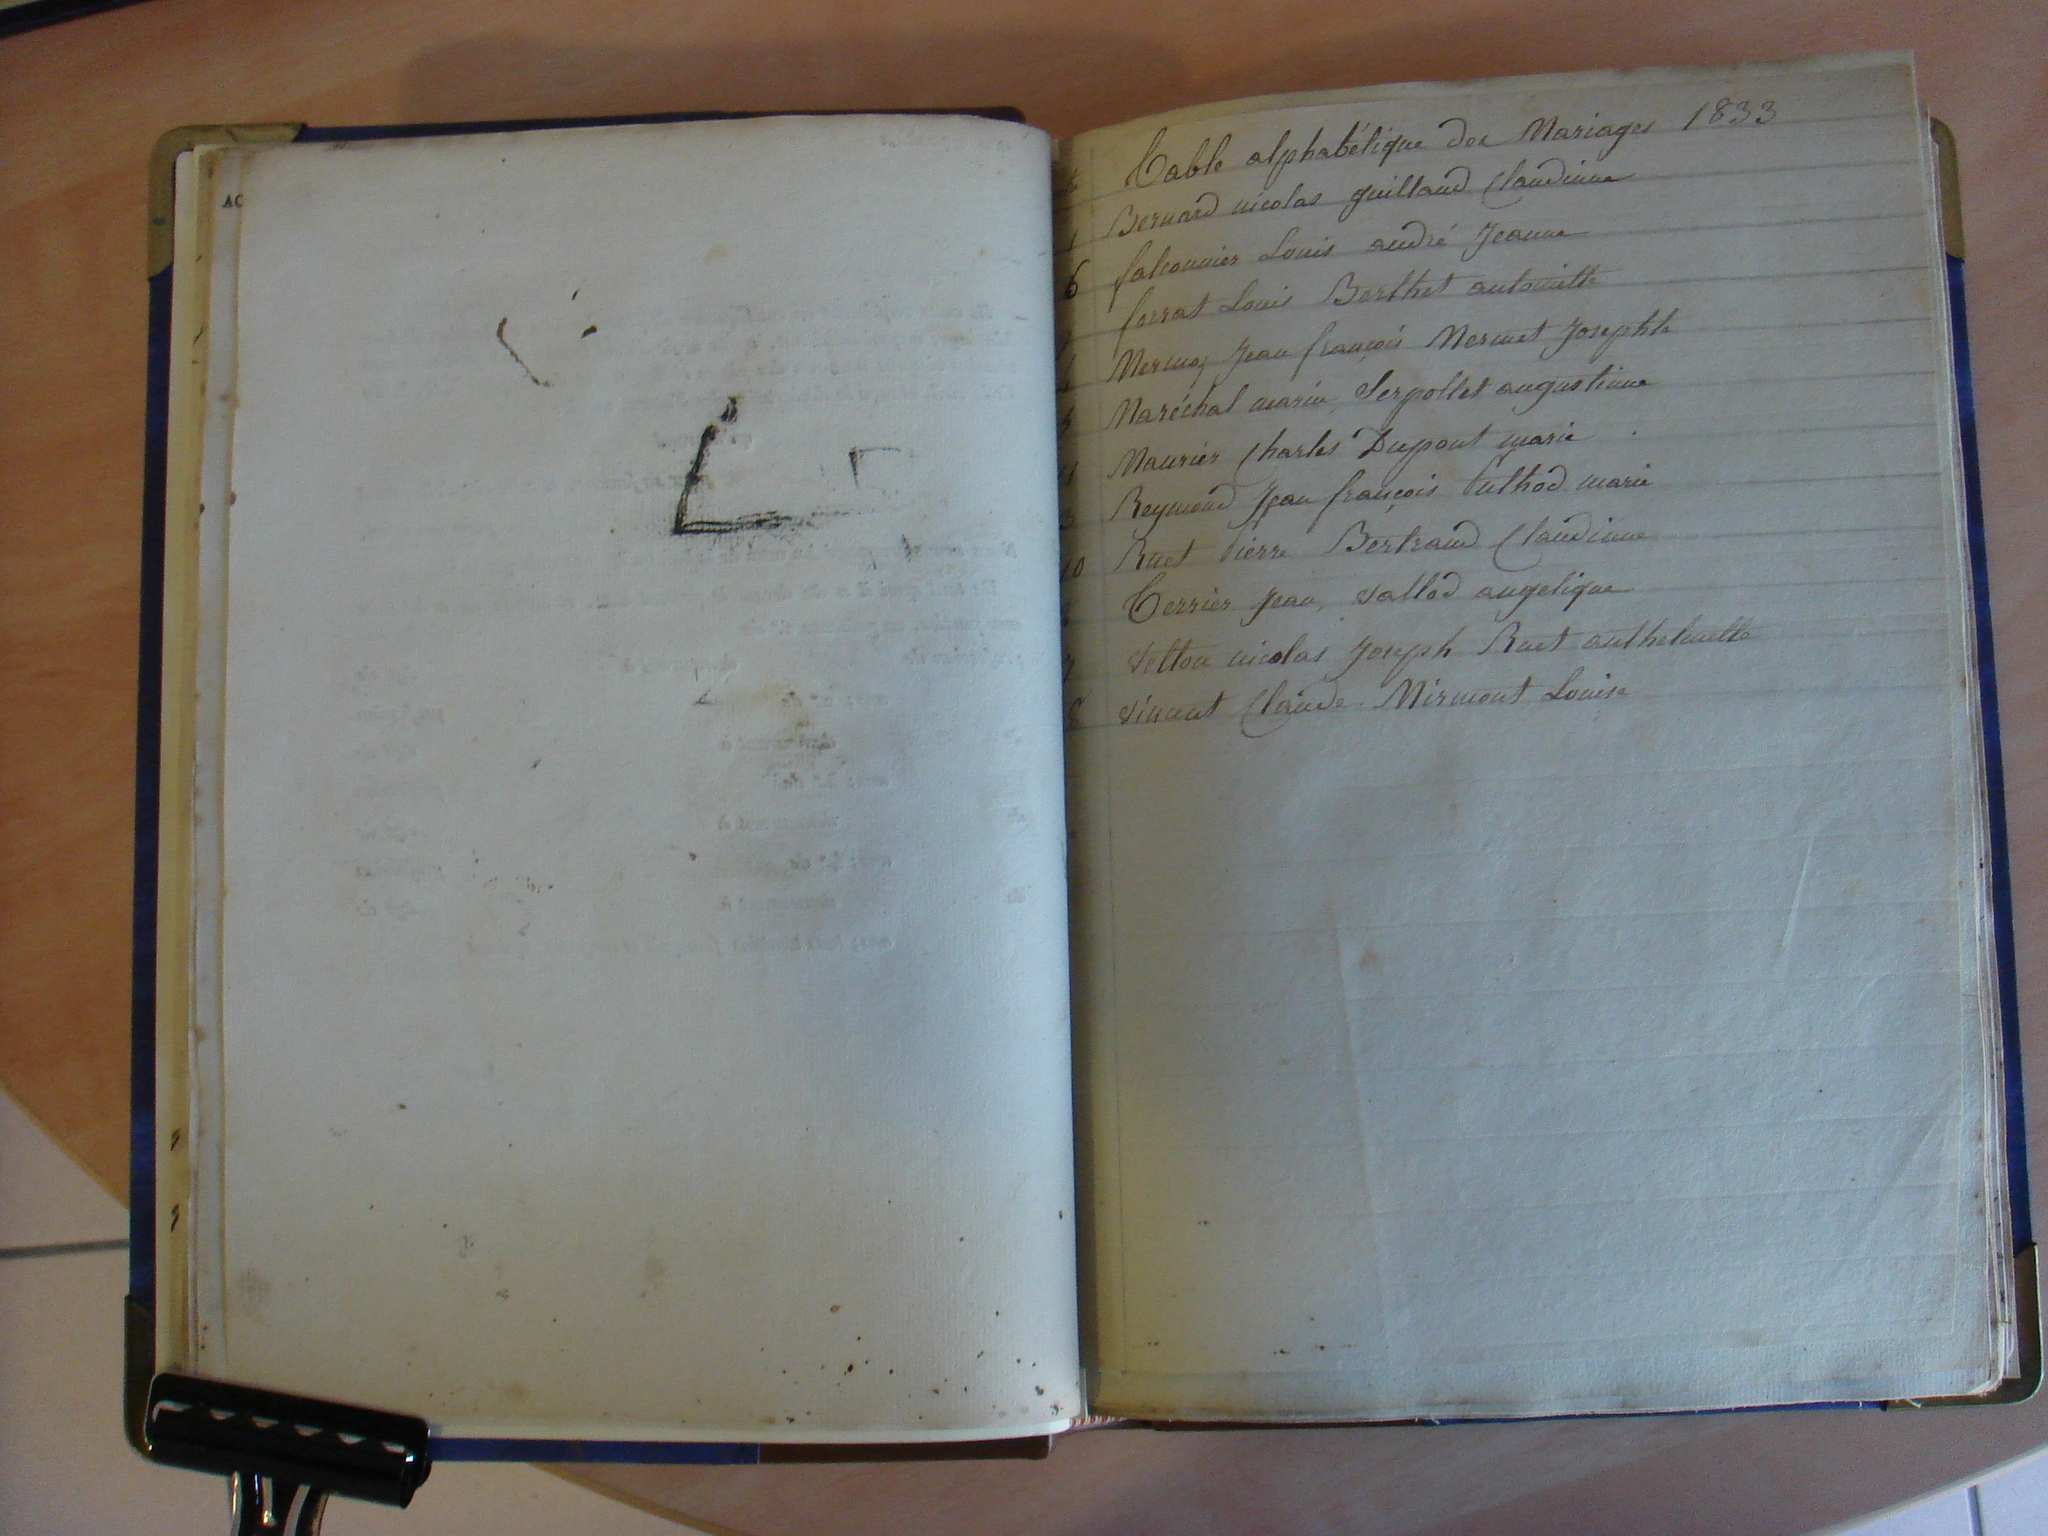 AC
Table alphabétique des Mariages 1833
1 Bernard nicolas guilland Claudinne
6 falconnier Louis andré Jeanne
forrat Louis Berthet antoinette
Mermoz Jean françois Mermet Josephte
Maréchal marin, Serpollet augustinne
Maurier Charles Dupont marie
Reymond Jean françois Puthod marie
10 Ruet Pierre Bertrand Claudinne
Terrier Jean, vallod angelique
vettou nicolas Joseph Ruet anthelmette
8 vincent Claude. Mirmont Louise